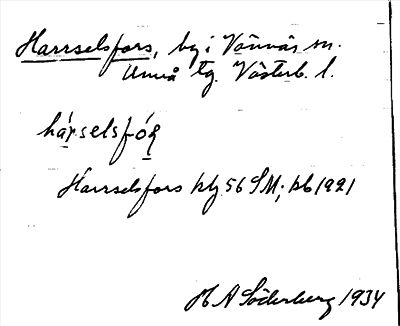 Harrselsfors, by i Vännäs sn.
Umeå tg. Västerb. l.
hárselsfóR
Harrselsfors kbg 56 SM; kb 1921
H A Söderberg 1934